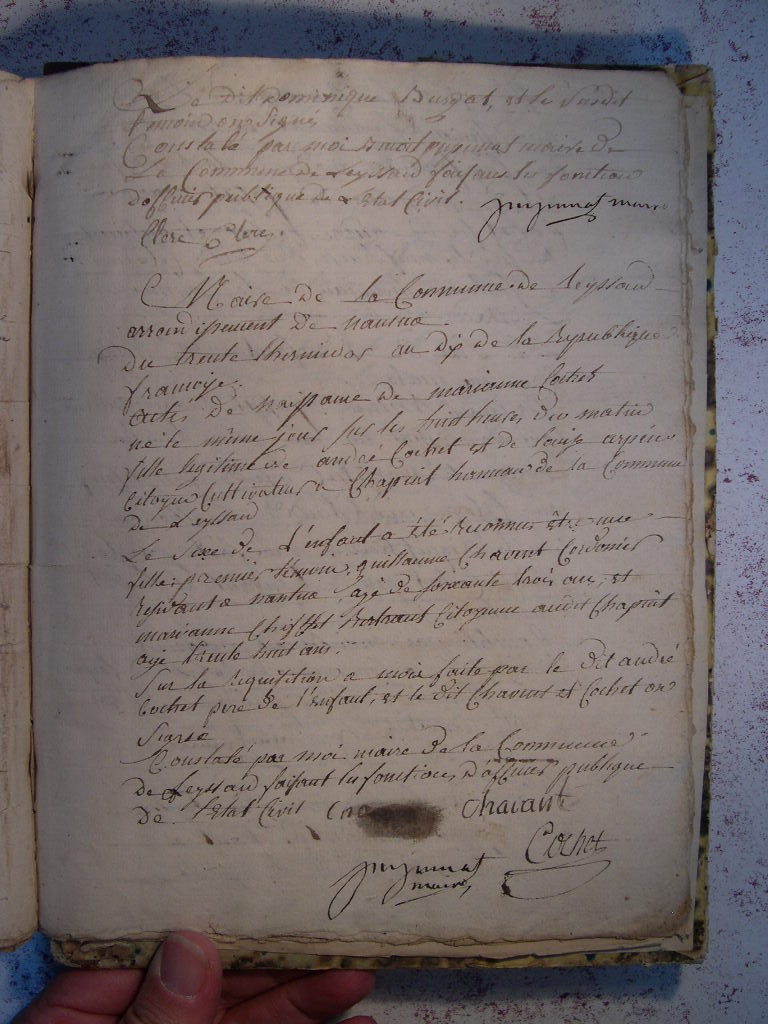 Le Dit Dominique Burgat, et le susdit
temoin ont signé
Constaté par moi Benoit maire de
La Commune de Leyssard faisant les fonction
d'officier publique de L'Etat Civil.
maire
Maire de la Commune de Leyssard
arrondissement de nantua
Du trente thermidor an Dix de la Republique
françoise.
acte de naissance de marianne Cochet
né le même jour sur les huit heures du matin
fille legitime de andré Cochet et de Louise
Citoyen Cultivateur a Chapiat hameau de la Commune
de Leyssard
Le Sexe de L'enfant a été Reconnu être une
fille: premier temoin, guillaume Chavent Cordonier
a nantua agé de soixante trois ans, et
marianne Citoyenne audit Chapiat
agé trente huit ans.
Sur la Requisition a moi faite par le dit andré
Cochet pere de l'Enfant, et le dit Chavent et Cochet on
Siarsé
Constaté par moi maire de la Commune
de Leyssard faisant les fonctions d'officier publique
de L'Etat Civil
chavant
Cochet
maire